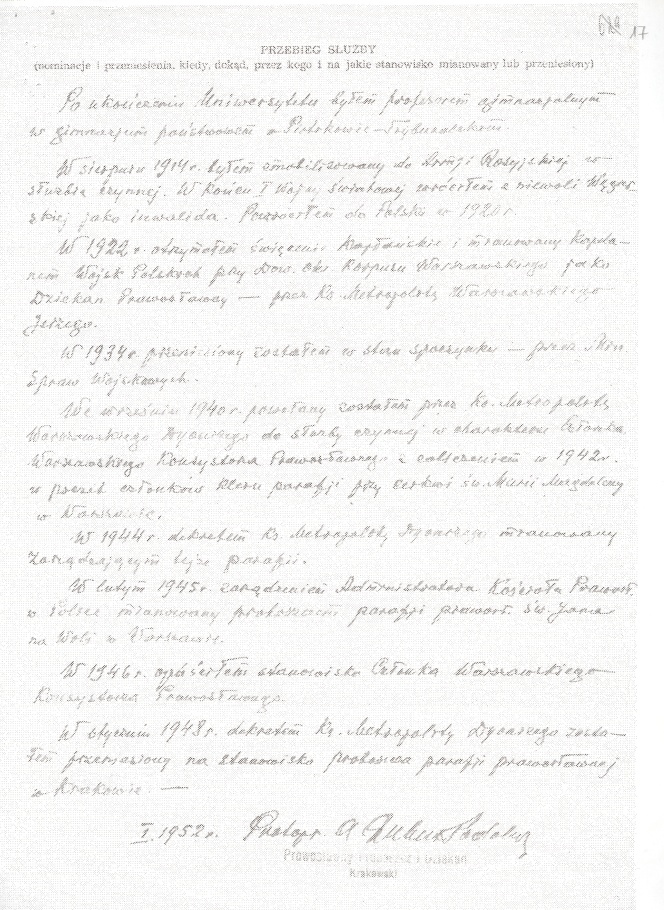 17
PRZEBIEG SŁUŻBY
(nominacje i przeniesienia, kiedy, dokąd, przez kogo i na jakie stanowisko mianowany lub przeniesiony)
Po ukończeniu Uniwersytetu byłem profesorem gimnazjalnym
w gimnazjum państwowem w Piotrkowie-Trybunalskim.
W sierpniu 1914 r. byłem zmobilizowany do Armji Rosyjskiej w
służbie czynnej. W końcu I Wojny Światowej wróciłem z niewoli Węgier-
skiej jako inwalida. Powróciłem do Polski w 1920 r.
W 1922 r. otrzymałem święcenie Kapłańskie i mianowany Kapela-
nem Wojsk Polskich przy Dow. Okr. Korpusu Warszawskiego jako
Dziekan Prawosławny — przez Ks. Metropolitę Warszawskiego
Jerzego.
W 1934 r. przeniesiony zostałem w stan spoczynku — przez Min.
Spraw Wojskowych.
We wrześniu 1940 r. powołany zostałem przez Ks. Metropolitę
Warszawskiego Dyonizego do służby czynnej w charakterze Członka
Warszawskiego Konsystorza Prawosławnego z zaliczeniem w 1942 r.
w poczet członków kleru parafji przy cerkwi św. Marii Magdaleny
w Warszawie.
W 1944 r. dekretem Ks. Metropolity Dyonizego mianowany
zarządzającym tejże parafii.
W lutym 1945 r. zarządzeniem Administratora Kościoła Prawosł.
w Polsce mianowany proboszczem parafji prawosł. św. Jana
na Woli w Warszawie.
W 1946 r. opuściłem stanowisko Członka Warszawskiego
Konsystorza Prawosławnego.
W styczniu 1948 r. dekretem Ks. Metropolity Dyonizego zosta-
łem przeniesiony na stanowisko proboszcza parafji prawosławnej
w Krakowie. —
I.1952 r. Protopr. A
Prawosławny Proboszcz i Dziekan
Krakowski